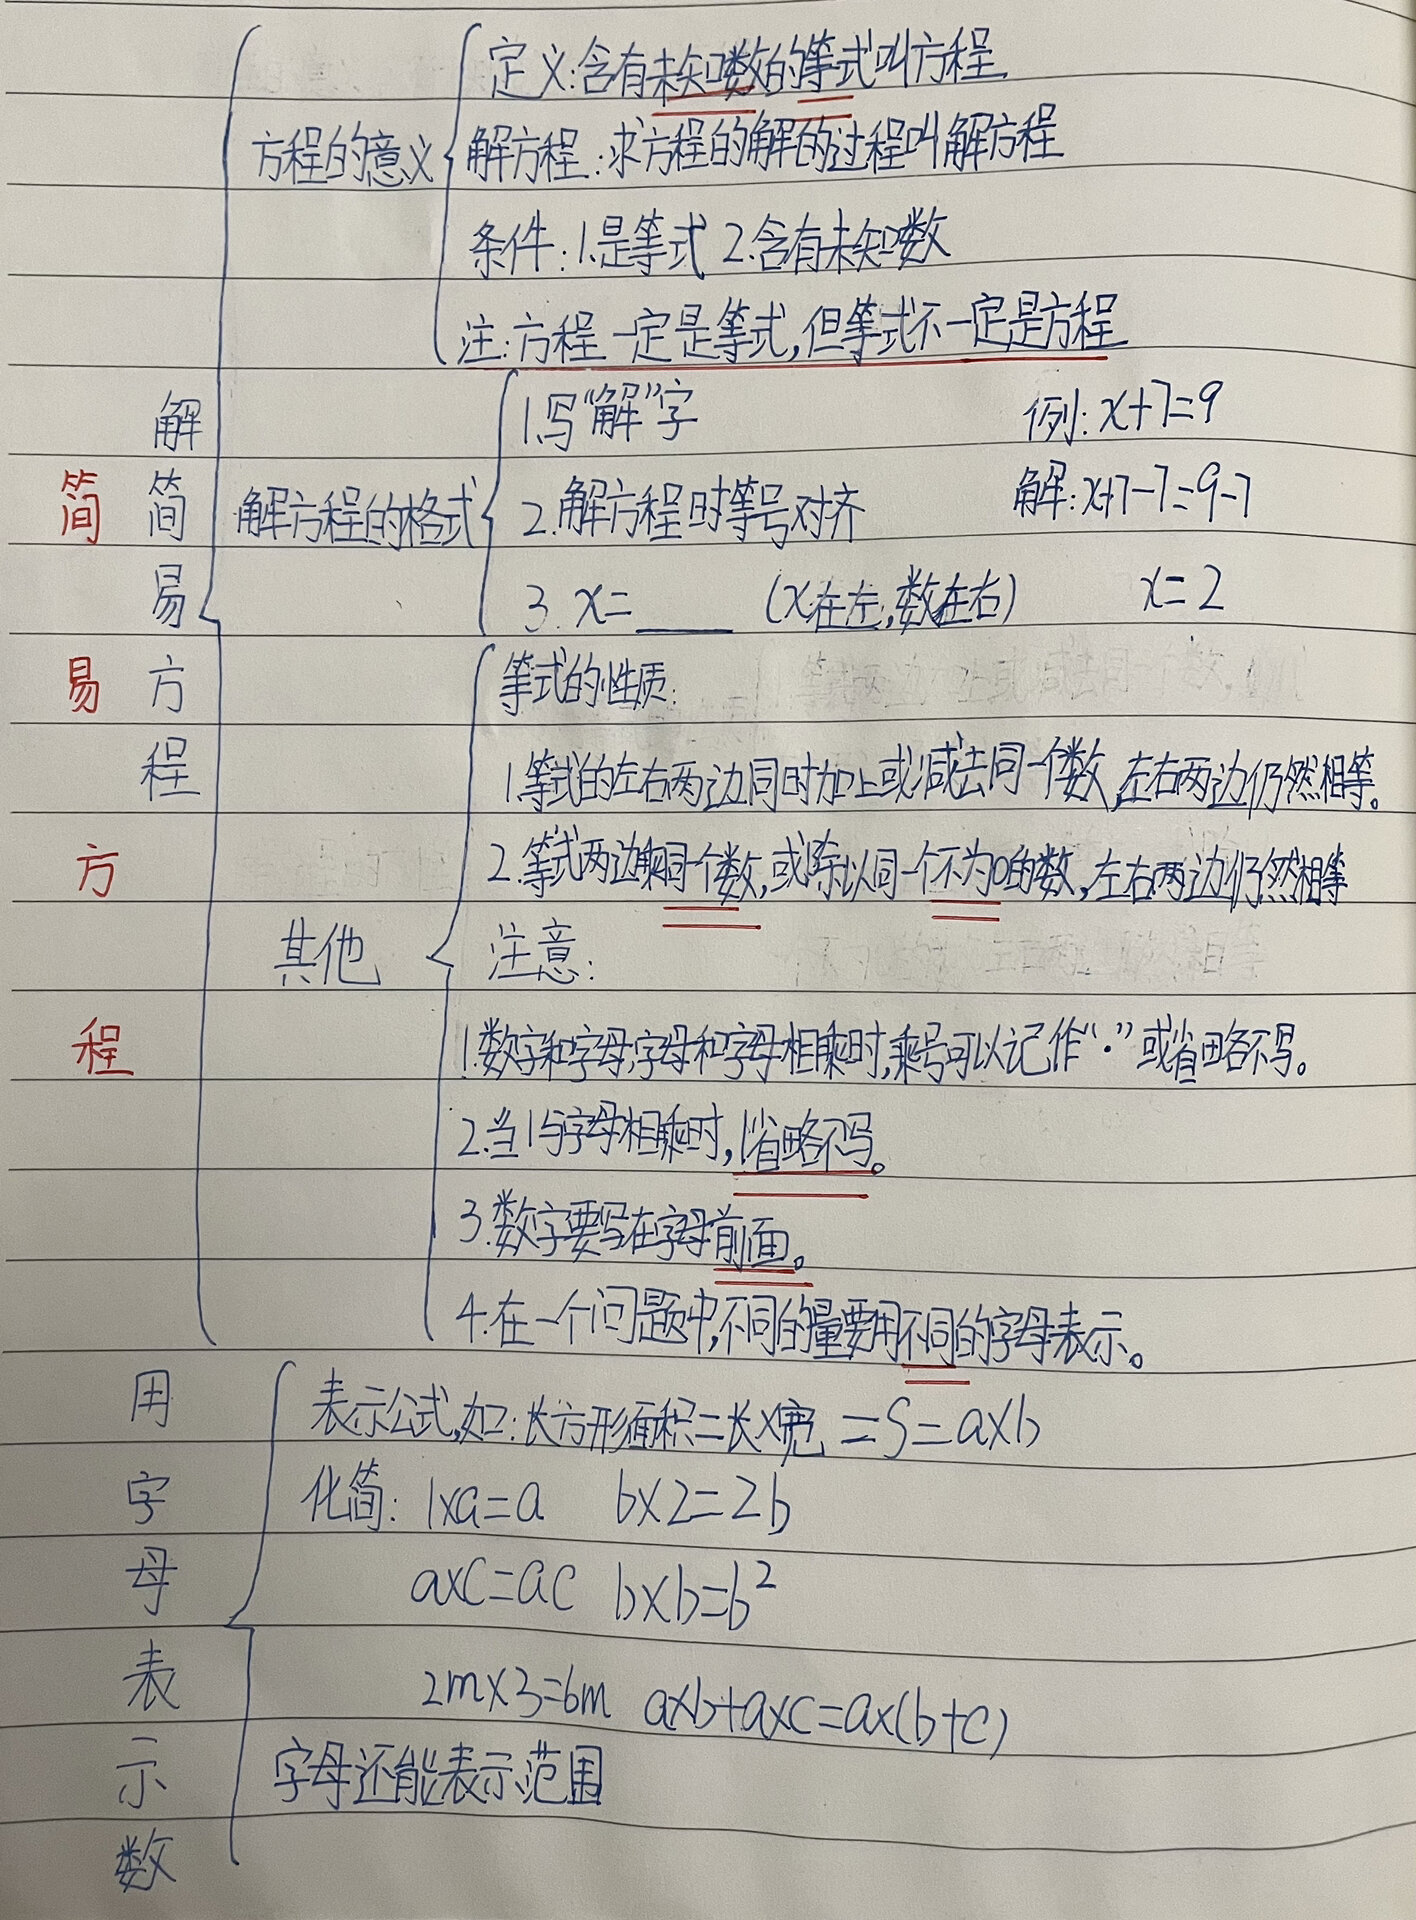 简易方程
解简易方程
方程的意义
定义:含有未知数的等式叫方程
解方程:求方程的解的过程叫解方程
条件:1.是等式 2.含有未知数
注:方程一定是等式,但等式不一定是方程
解方程的格式
1.写“解”字 例:x+7=9
2.解方程时等号对齐 解:x+7-7=9-7
3. x=____ (x在左,数在右) x=2
其他
等式的性质:
1.等式的左右两边同时加上或减去同一个数,左右两边仍然相等。
2.等式两边乘同个数,或除以同一个不为0的数,左右两边仍然相等
注意:
1.数字和字母,字母和字母相乘时,乘号可以记作“·”或省略不写。
2.当1与字母相乘时,1省略不写。
3.数字要写在字母前面。
4.在一个问题中,不同的量要用不同的字母表示。
用字母表示数
表示公式,如:长方形面积=长×宽 =S=a×b
化简: 1×a=a b×2=2b
a×c=ac b×b=b²
2m×3=6m a×b+a×c=a×(b+c)
字母还能表示范围